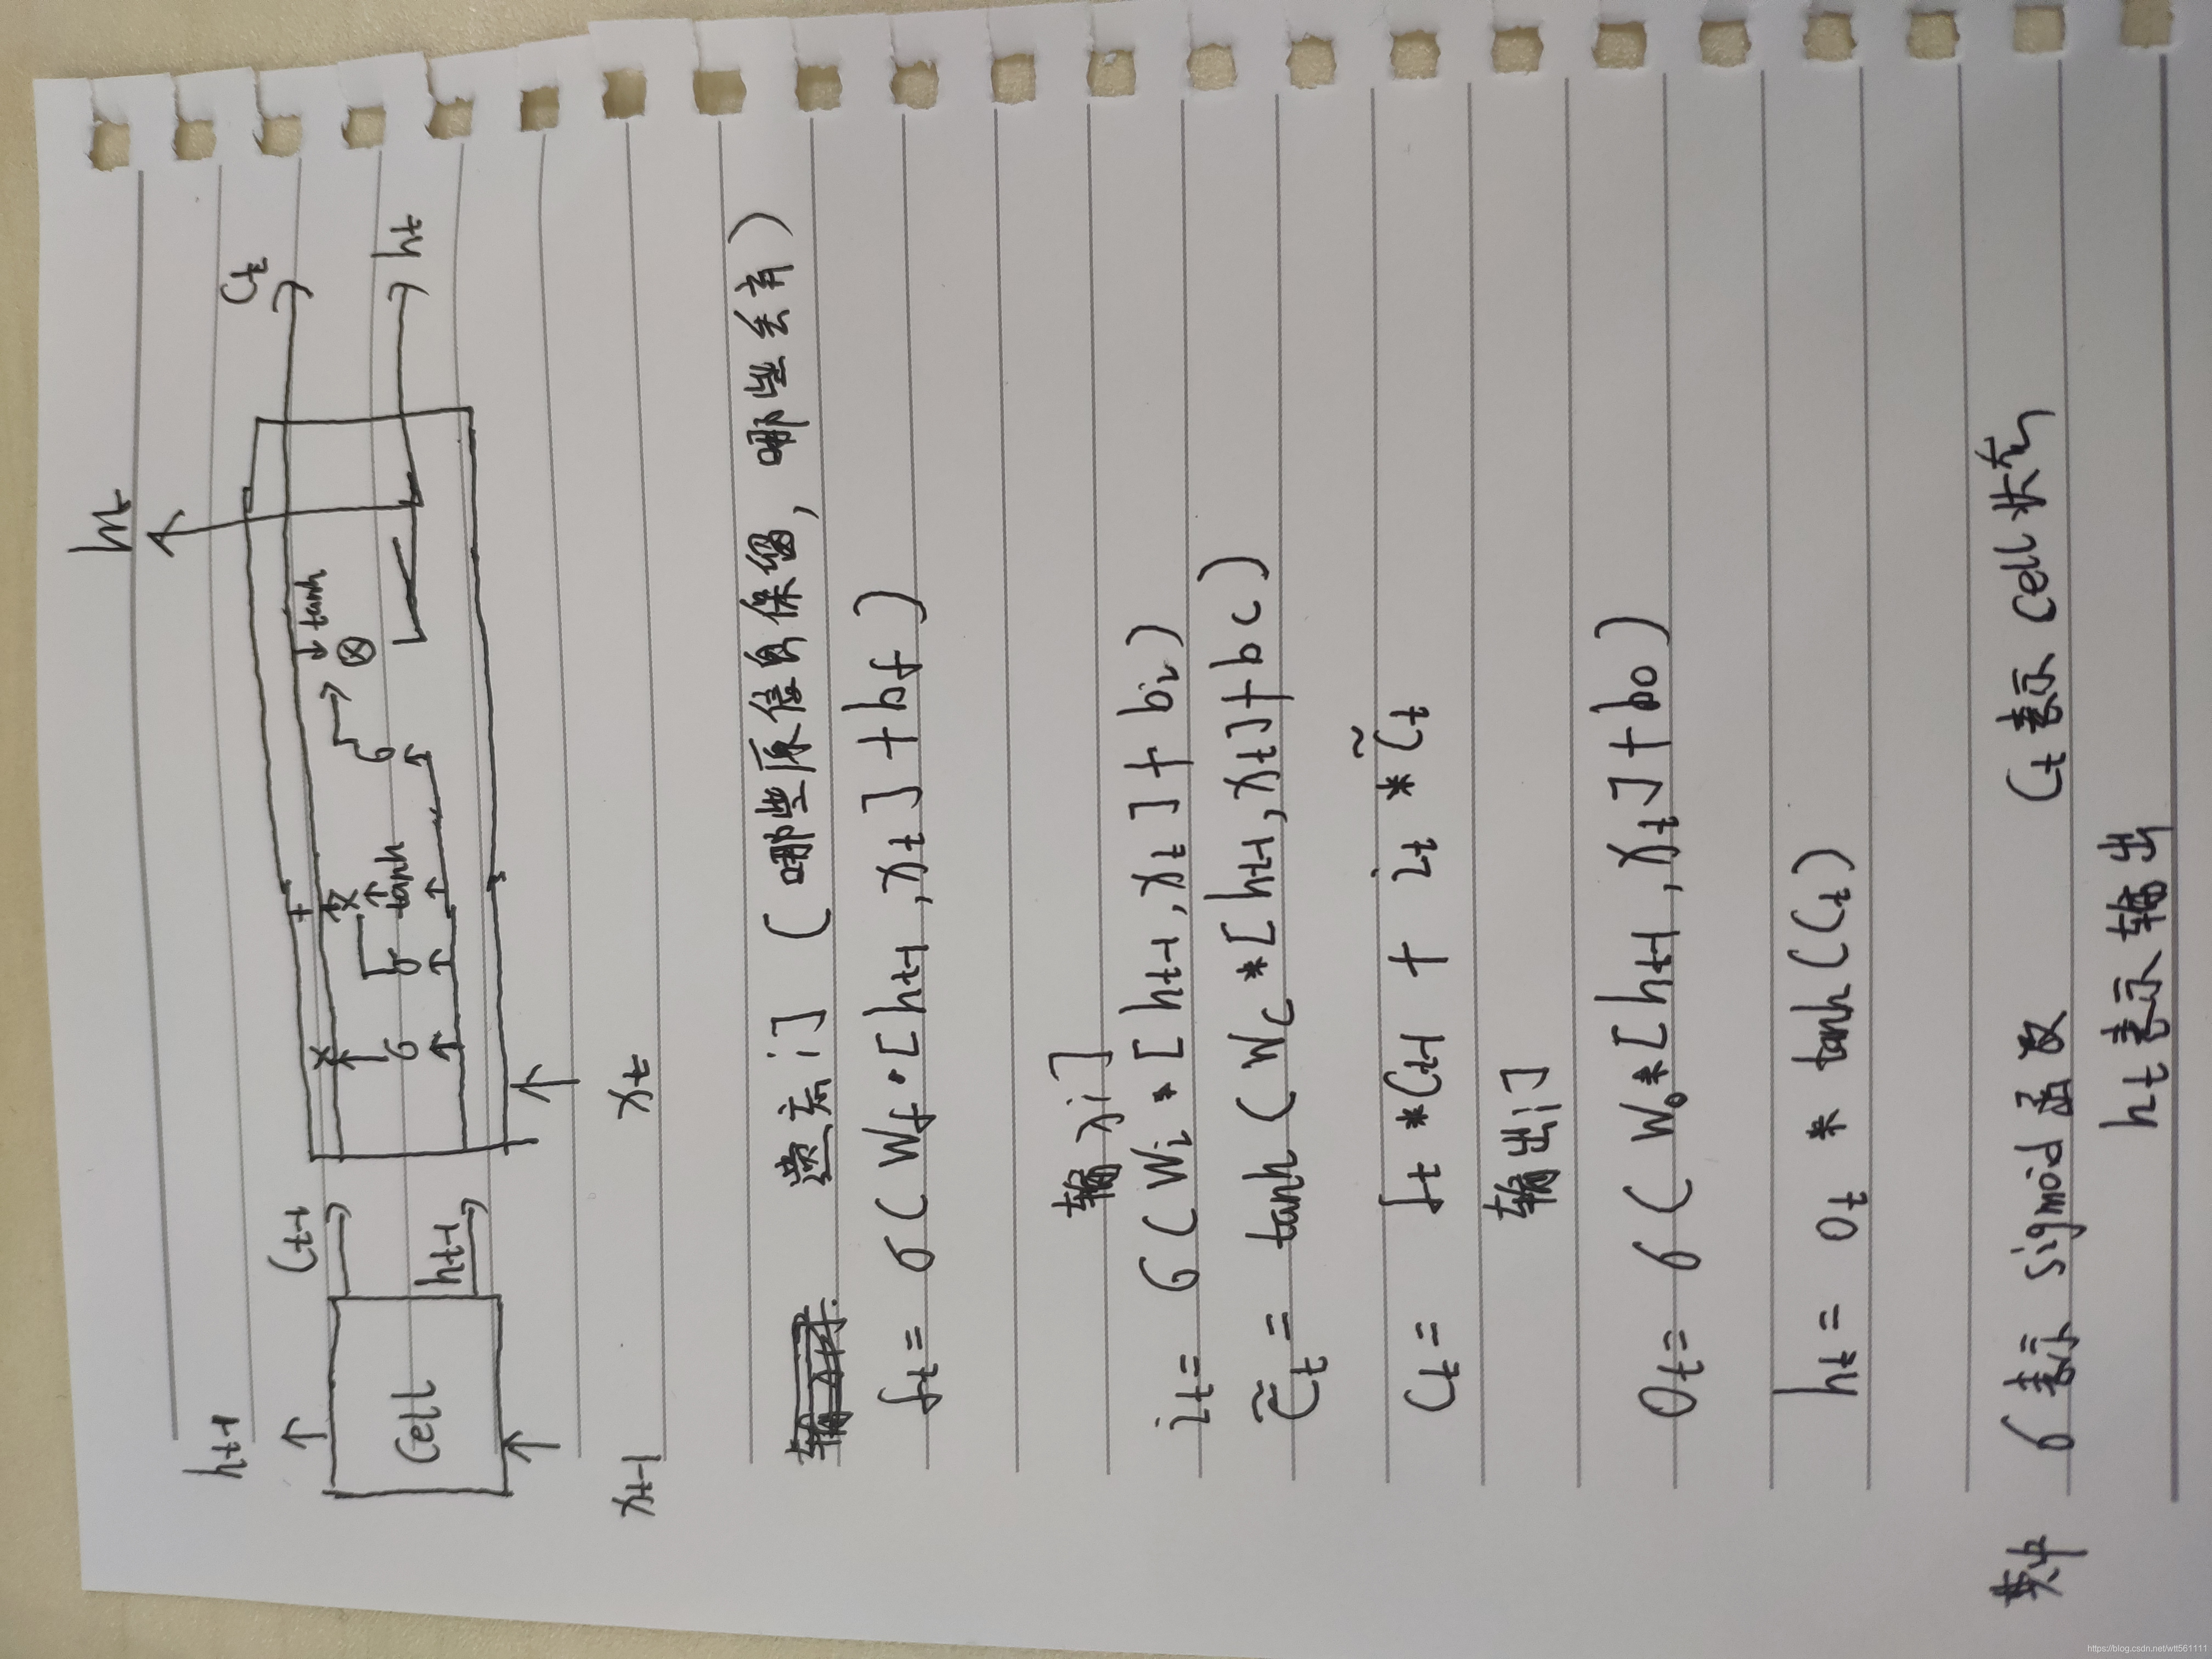 h_t
h_{t-1}
C_{t-1} C_t
+ tanh
× × ⊗
Cell σ σ tanh σ h_t
h_{t-1}
x_{t-1} x_t
遗忘门 (哪些原信息保留, 哪些丢弃)
f_t = σ(W_f · [h_{t-1}, x_t] + b_f)
输入门
i_t = σ(W_i * [h_{t-1}, x_t] + b_i)
C̃_t = tanh(W_C * [h_{t-1}, x_t] + b_C)
C_t = f_t * C_{t-1} + i_t * C̃_t
输出门
O_t = σ(W_o * [h_{t-1}, x_t] + b_o)
h_t = O_t * tanh(C_t)
其中 σ表示 sigmoid函数 C_t表示 Cell状态
h_t表示输出
https://blog.csdn.net/wtt561111